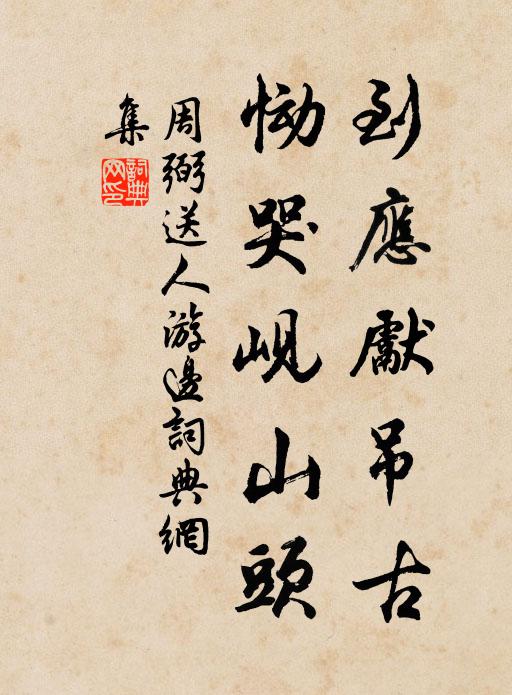 到應獻吊古
慟哭峴山頭
周弼送人游邊詞典網
集
詞典網印